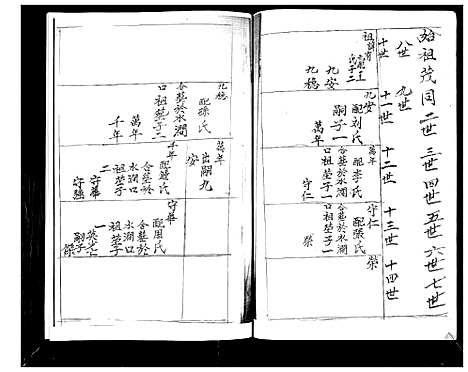 始祖茂同 二世 三世 四世 五世 六世 七世
八世 九世
十世 十一世 十二世 十三世 十四世
祖諱有
九安
九穩
九安
配刘氏
嗣子一
萬年
萬年
配李氏
合葬於水澗
口祖塋子一
守仁
守仁
配張氏
合葬於水澗
口祖塋子一
荣
荣
九穩
配孫氏
合葬於水澗
口祖塋子二
萬年
千年
萬年
出嗣九
安
千年
配趙氏
合葬於
水澗口
祖塋子
二
守華
守強
守華
配周氏
合葬於
水澗口
祖塋
嗣子